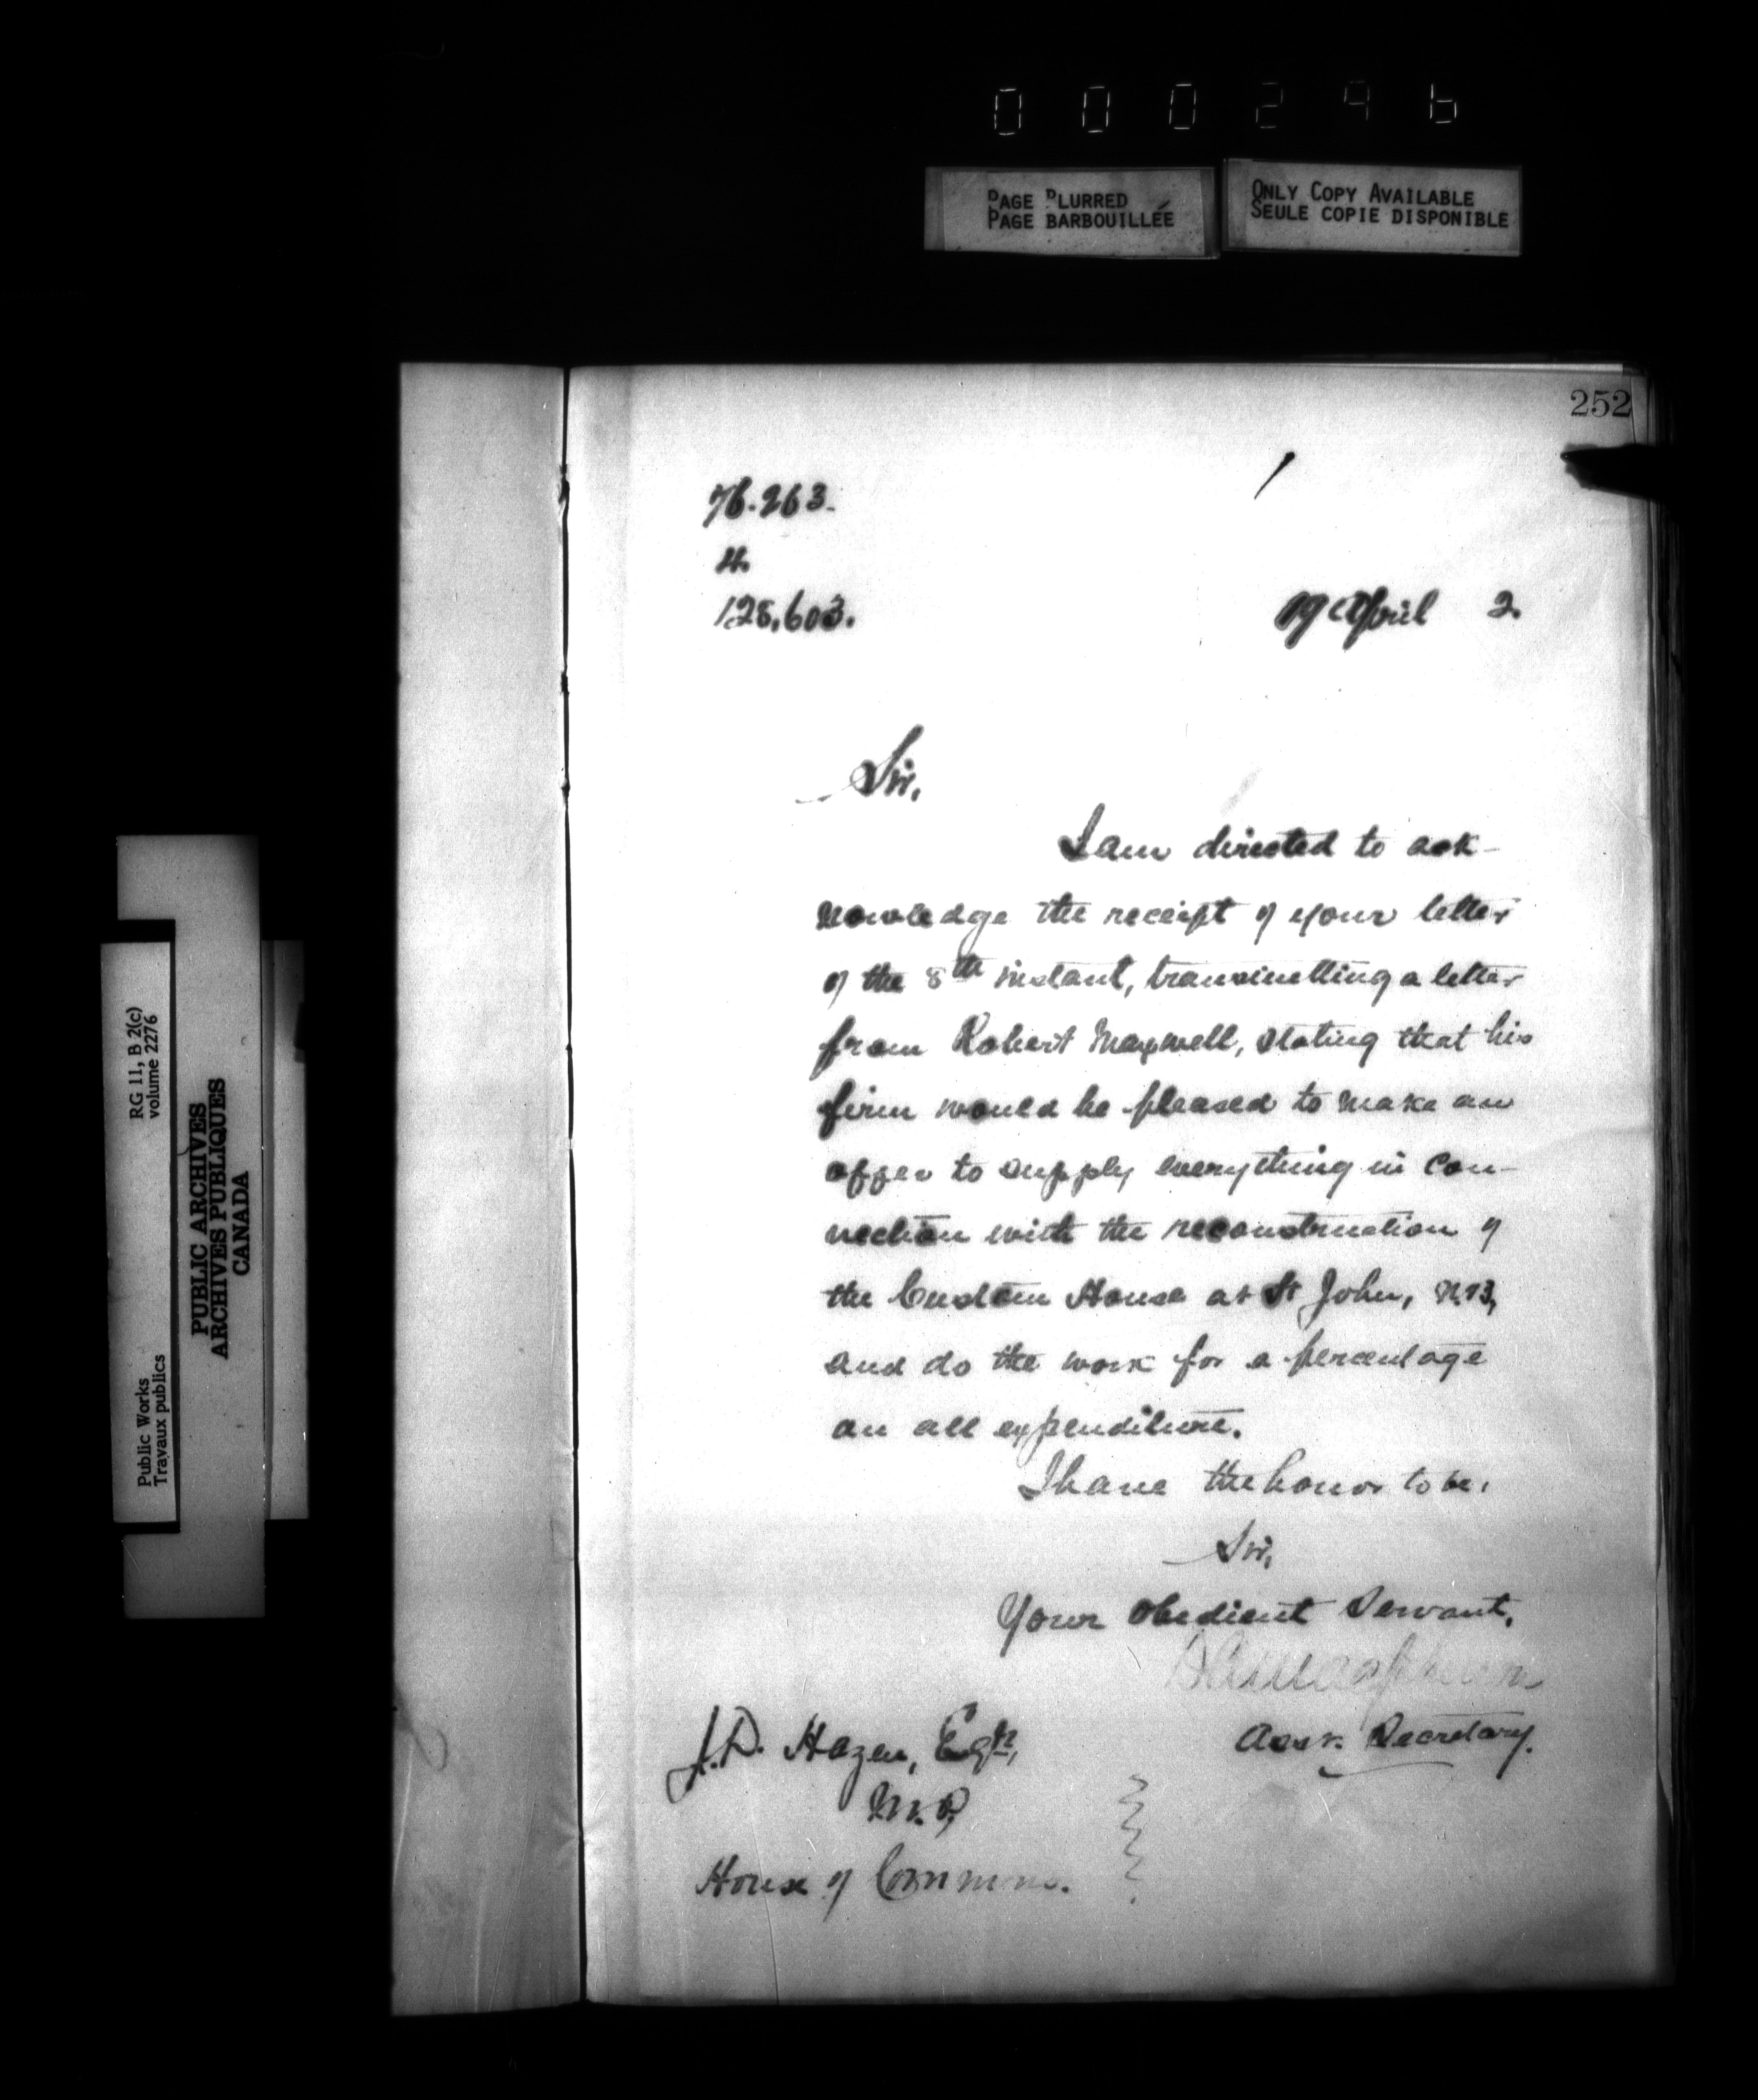 000296
PAGE BLURRED
PAGE BARBOUILLÉE
ONLY COPY AVAILABLE
SEULE COPIE DISPONIBLE
252
76.263.
H.
128,603.
19 April 2.
Sir,
I am directed to ack-
nowledge the receipt of your letter
of the 8th instant, transmitting a letter
from Robert Maxwell, stating that his
firm would be pleased to make an
offer to supply everything in con-
nection with the reconstruction of
the Custom House at St John, N.B,
and do the work for a percentage
on all expenditure.
I have the honor to be,
Sir,
Your obedient Servant,
Asst. Secretary.
J.D. Hazen, Esqre,
M.P,
House of Commons.
RG 11, B 2(c)
volume 2276
PUBLIC ARCHIVES
ARCHIVES PUBLIQUES
CANADA
Public Works
Travaux publics